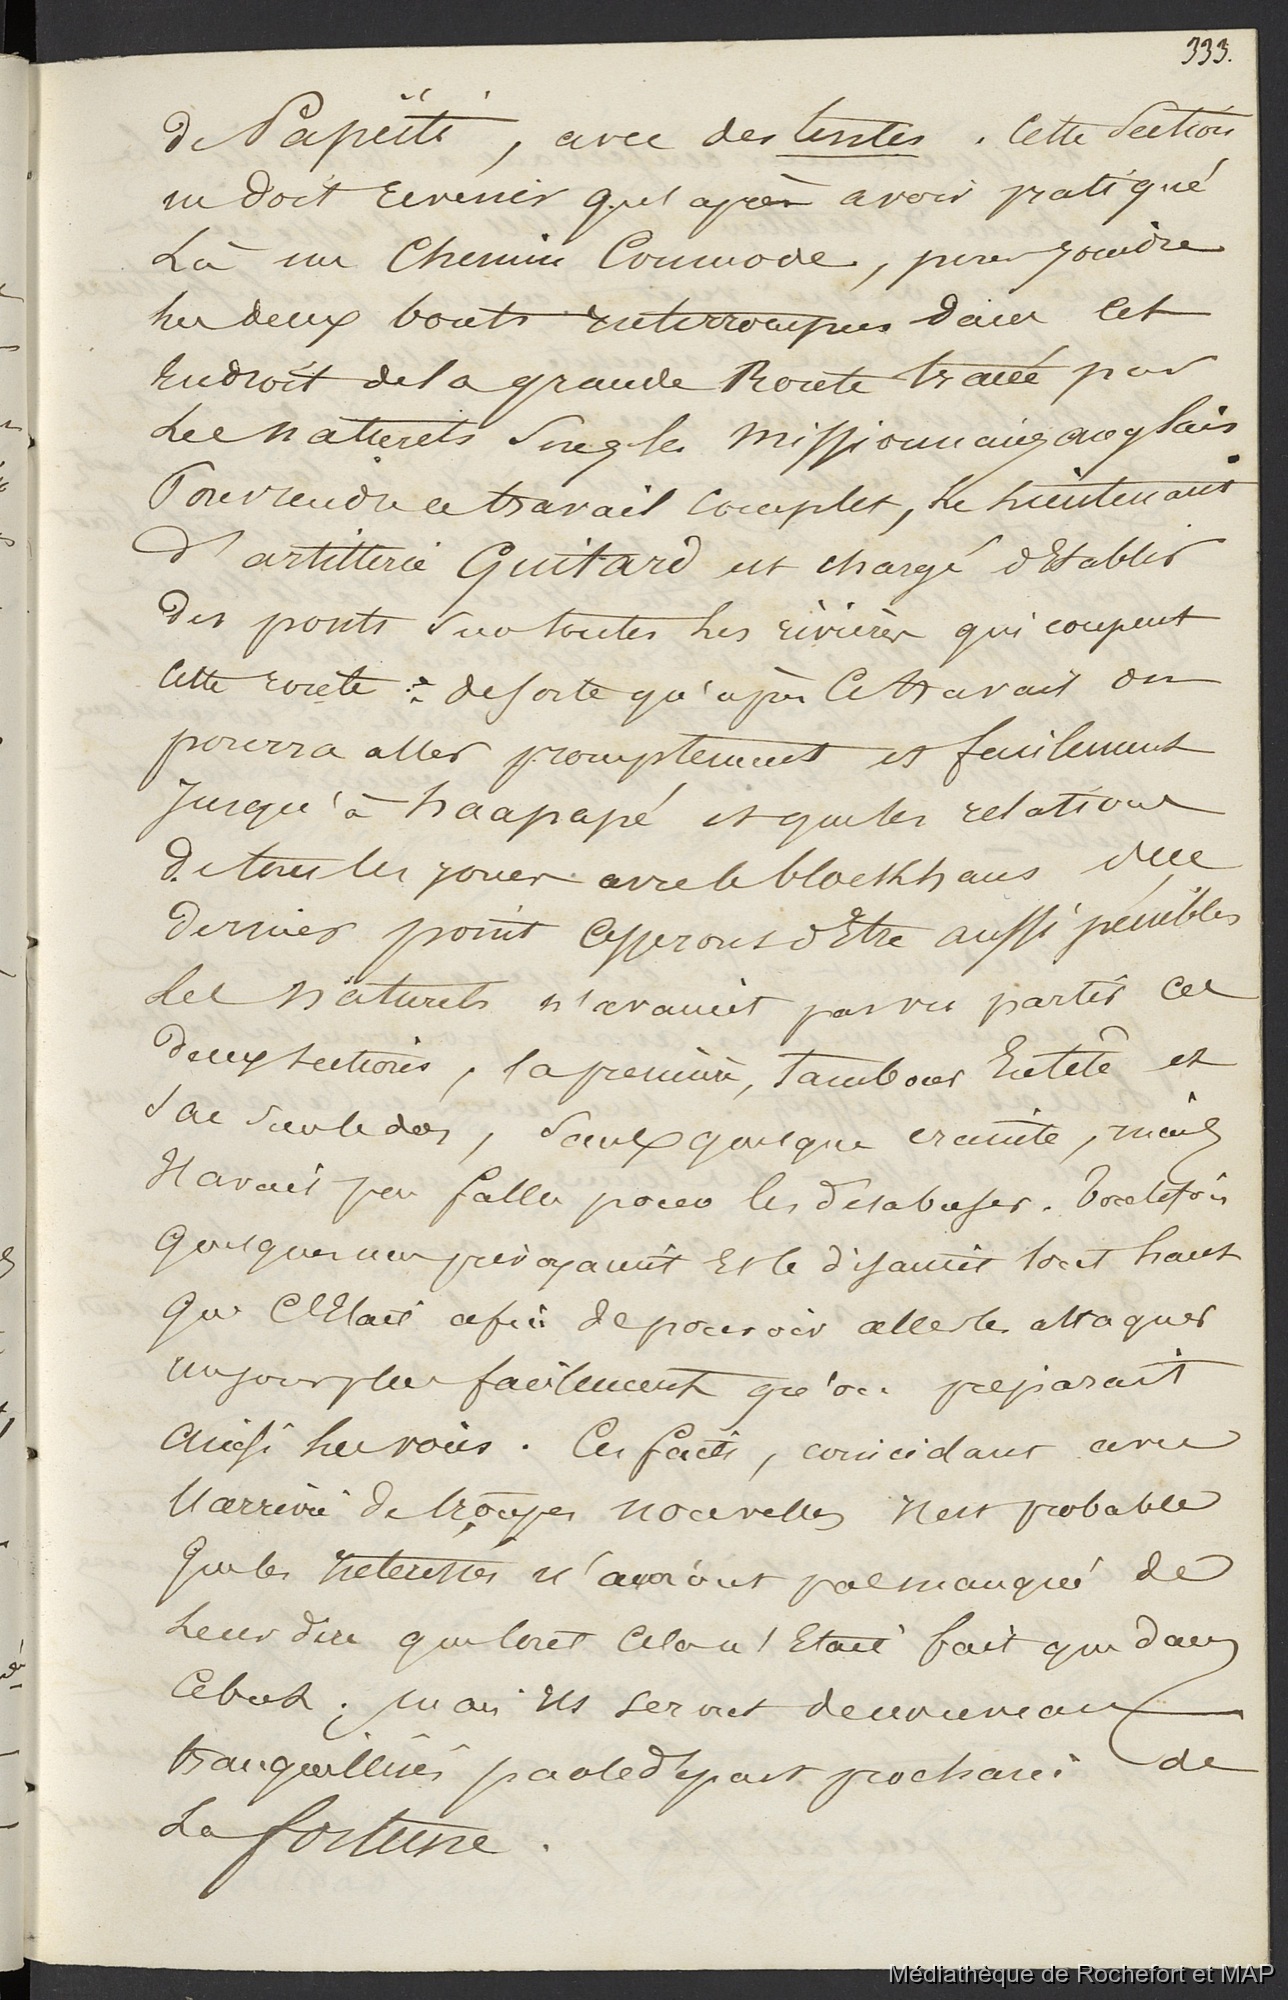 333.
de Papéïti, avec des tentes. Cette Section
ne doit revenir qu'après avoir pratiqué
Là un Chemin Commode, pour joindre
les deux bouts interrompus dans cet
Endroit de la grande Route tracée par
Les naturels sous les missionnaires anglais
Pour rendre ce travail complet, le Lieutenant
d'artillerie Guitard est chargé d'Etablir
Des ponts sur toutes les rivières qui coupent
cette route : de sorte qu'après ce travail on
pourra aller promptement et facilement
jusqu'à haapapé et que les relations
de tous les jours avec le blockhaus de ce
dernier point cesseront d'Etre aussi pénibles
Les naturels n'avaient pas vu partir ces
deux sections, la première, tambour En tête et
Sac sur le dos, sans quelque crainte, mais
Il avait peu fallu pour les désabuser. Toutefois
quelques uns prévoyaient Et le disaient tout haut
que C'Etait afin de pouvoir aller les attaquer
un jour plus facilement qu'on préparait
ainsi les voies. Ces faits, coincidant avec
l'arrivée de troupes nouvelles Il est probable
que les n'auront pas manqué de
Leur dire que tout cela n'Etait fait que dans
ce but ; mais Ils seront de nouveau
tranquillisés par le départ prochain de
La fortune.
Médiathèque de Rochefort et MAP